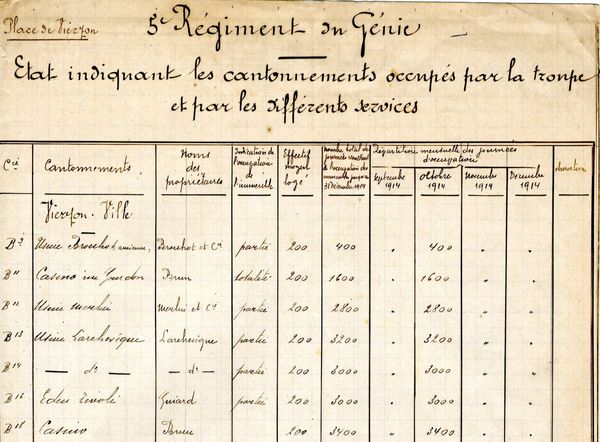 Place de Vierzon
5e Régiment du Génie
Etat indiquant les cantonnements occupés par la troupe
et par les différents services
Cie Cantonnements Noms des propriétaires Indication de l'occupation de l'immeuble Effectif moyen logé nombre total de journées 31 Décembre 1914 Répartition mensuelle des journées d'occupation Septembre 1914 Octobre 1914 Novembre 1914 Décembre 1914 observation
Vierzon-Ville
B3 Usine Brouhot Brouhot et Cie partie 200 400 " 400 " "
B11 Casino Perrin totalité 200 1600 " 1600 " "
B12 Usine Merlin Merlin et Cie partie 200 2800 " 2800 " "
B13 Usine Larchevêque Larchevêque partie 200 3200 " 3200 " "
B14 — do — — do — partie 200 3000 " 3000 " "
B16 Eden Tivoli Guiard partie 200 3000 " 3000 " "
B18 Casino Perrin 200 3400 " 3400 " "